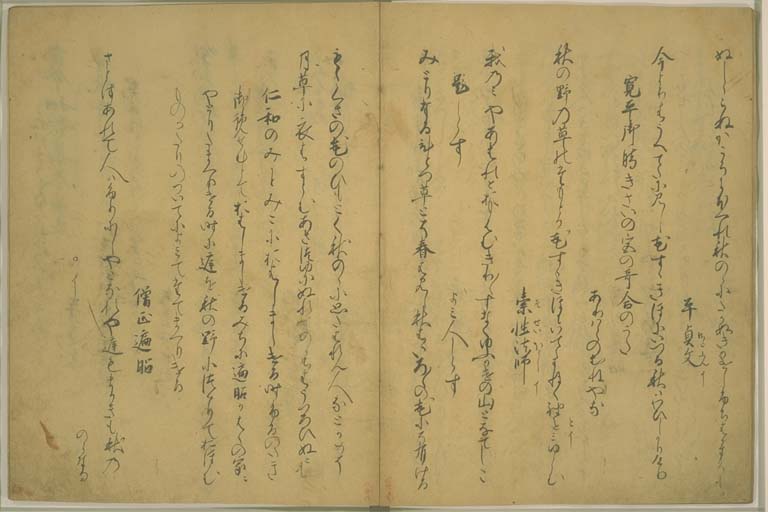 ぬししらぬかこそにほへれ秋のゝにたかぬきかけしふちはかまそも
平貞文
今よりはうへてたに見し花すゝきほにいつる秋はわひしかりけり
寛平御時きさいの宮の哥合のうた
ありはらのむねやな
秋の野の草のたもとか花すゝきほにいてゝまねく袖と見ゆらむ
素性法師
我のみやあはれとおもはむきり〳〵すなくゆふかけの山となてしこ
題しらす
よみ人しらす
みとりなるひとつ草とそ春は見し秋はいろ〳〵の花にそ有ける
もゝくさの花のひもとく秋のゝに思たはれん人なとかめそ
月草に衣はすらむあさつゆにぬれてのゝちはうつろひぬとも
仁和のみかとみこにおはしましける時ふるのたき
御覧せむとておはしましけるみちに遍昭かはゝの家に
やとりたまへりける時に庭を秋の野につくりておほむ
ものかたりのついてによみてたてまつりける
僧正遍昭
さとはあれて人はふりにしやとなれや庭もまかきも秋の
のらなる